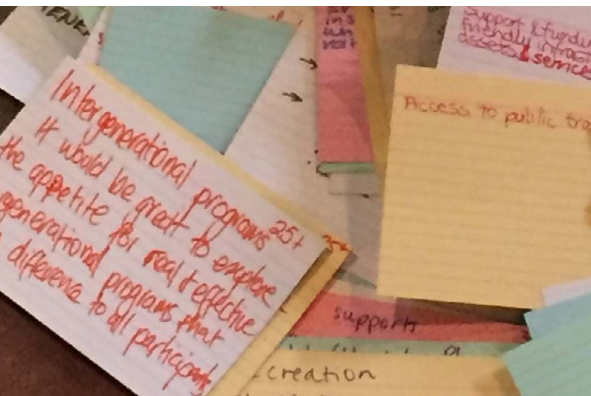 Intergenerational programs
25+
It would be great to explore
the appetite for real & effective
generational programs that
difference to all participants
Access to public
Support & funding
friendly
assets & services
supports
creation